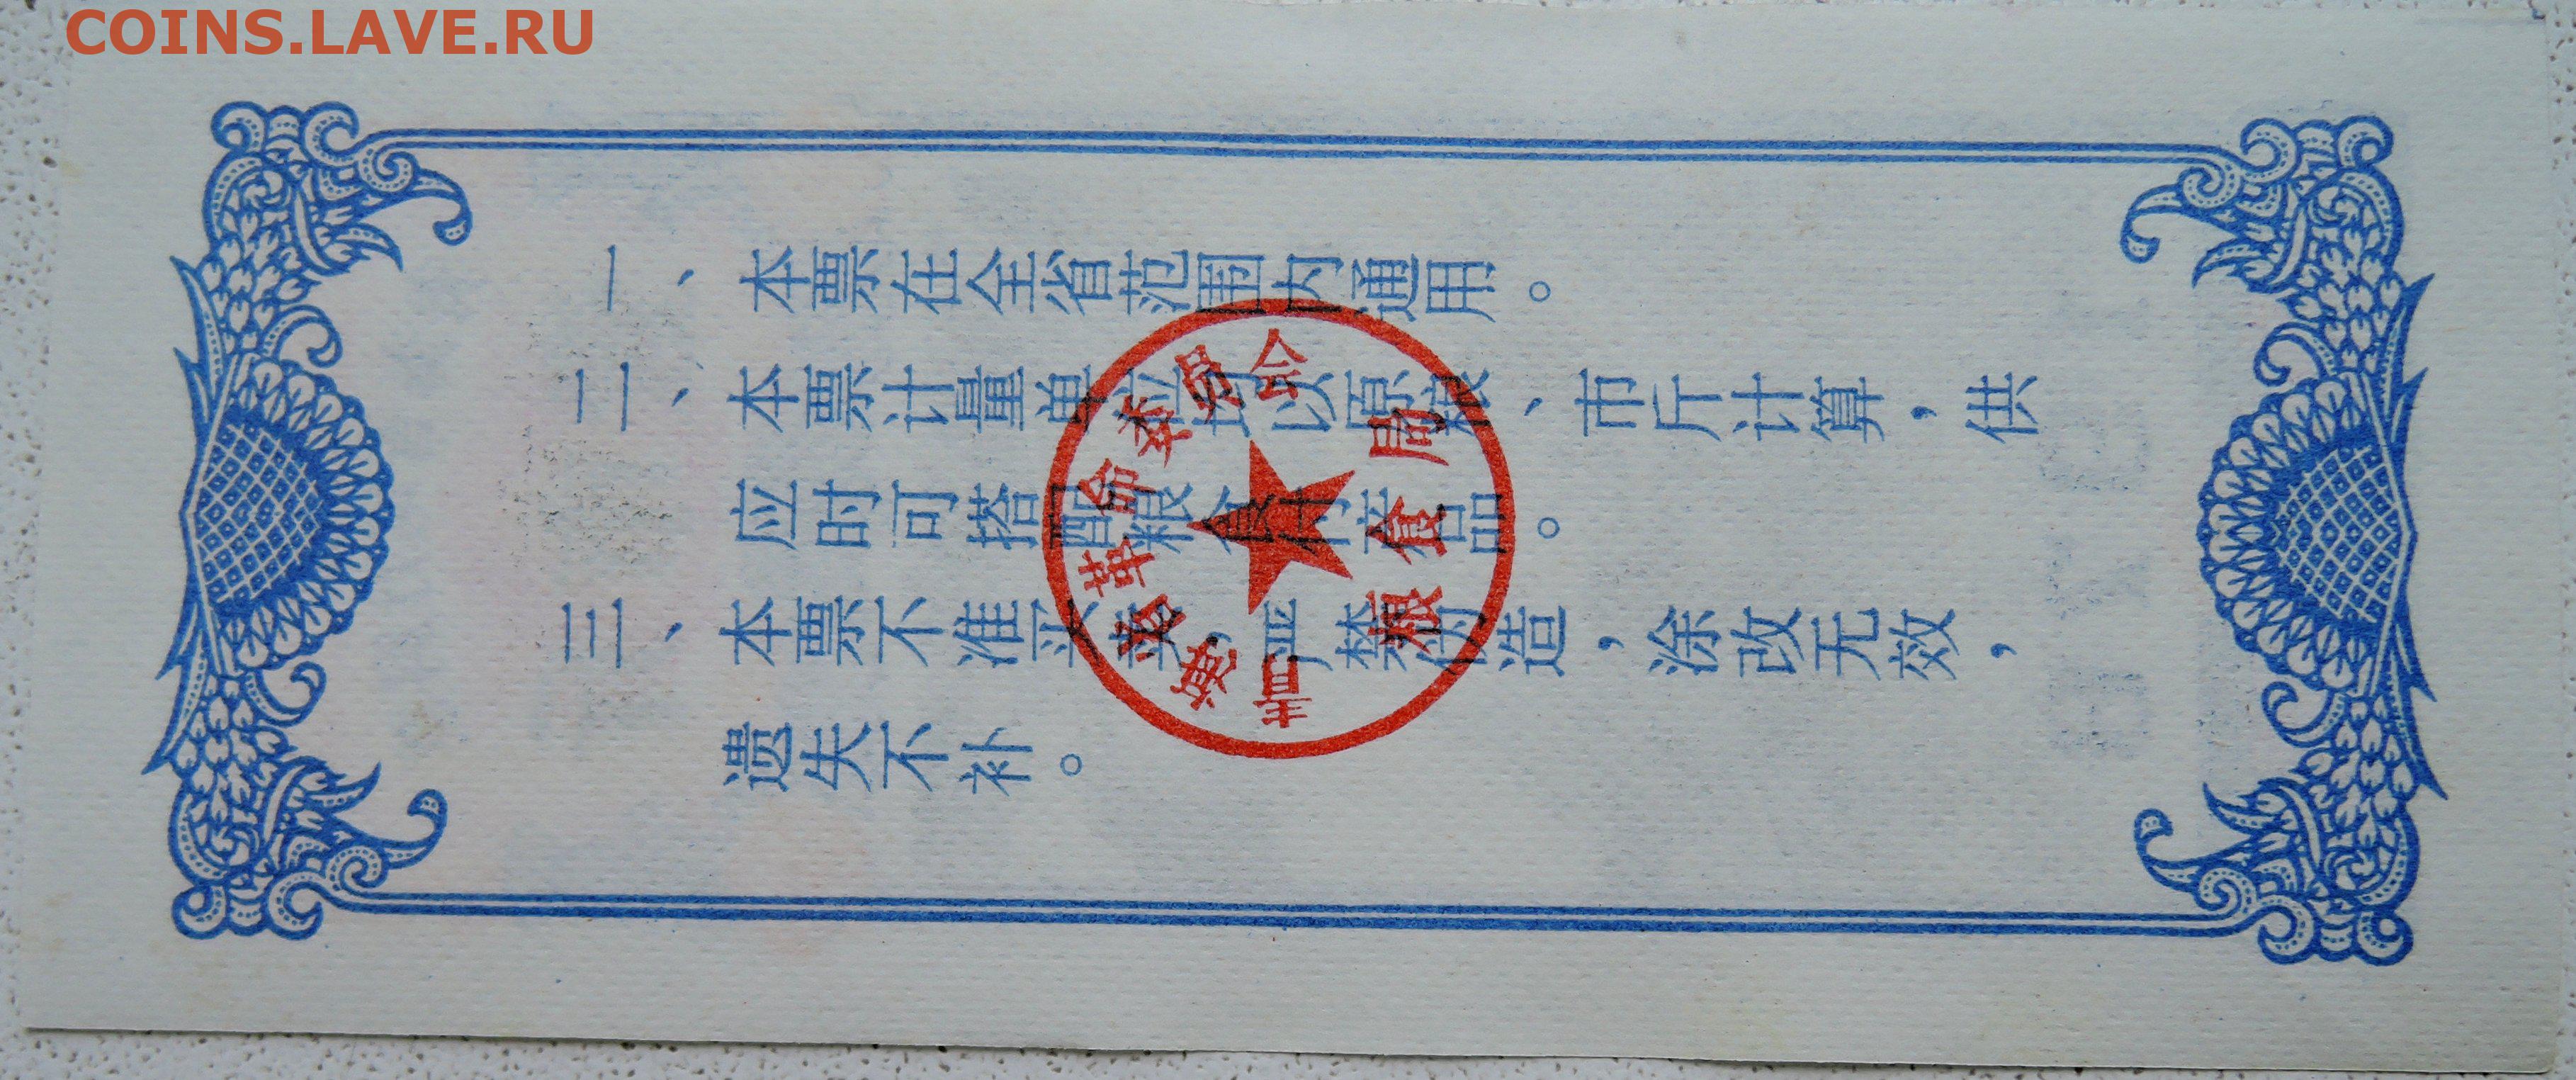 COINS.LAVE.RU
一、本票在全省范围内通用。
二、本票计量单位均以原粮、市斤计算，供
应时可搭配粮食付产品。
三、本票不准买卖，严禁伪造，涂改无效，
遗失不补。
青海省革命委员会
粮食局